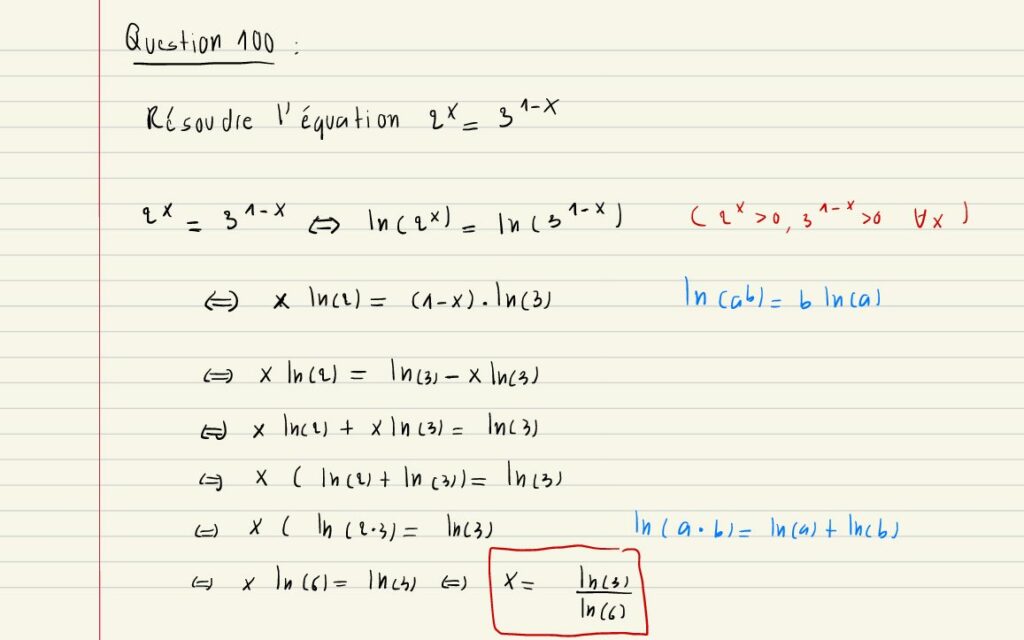 Question 100 :
Résoudre l'équation 2^x = 3^(1-x)
2^x = 3^(1-x) ⇔ ln(2^x) = ln(3^(1-x)) (2^x >0, 3^(1-x) >0 ∀x)
⇔ x ln(2) = (1-x).ln(3) ln(ab) = b ln(a)
⇔ x ln(2) = ln(3) - x ln(3)
⇔ x ln(2) + x ln(3) = ln(3)
⇔ x ( ln(2) + ln(3)) = ln(3)
⇔ x ( ln(2·3) = ln(3) ln(a·b) = ln(a) + ln(b)
⇔ x ln(6) = ln(3) ⇔ x = ln(3)/ln(6)